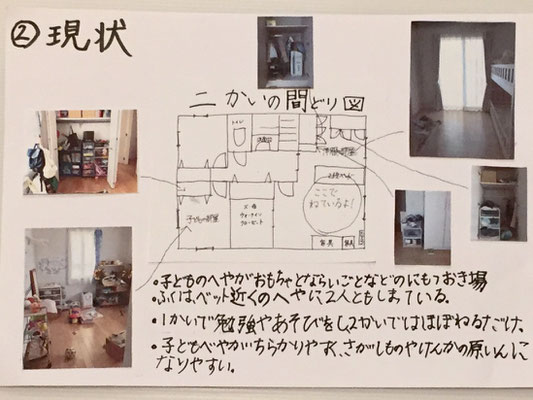 ②現状
二かいの間どり図
トイレ
子どもの部屋
ウォークイン
クローゼット
ここで
ねているよ!
家具
家具
・子どものへやがおもちゃとならいごとなどのにもつおき場
・ふくはベット近くのへやに2人ともしまっている。
・1かいで勉強やあそびをし、2かいではほぼねるだけ。
・子どもべやがちらかりやすく、さがしものやけんかの原いんに
なりやすい。